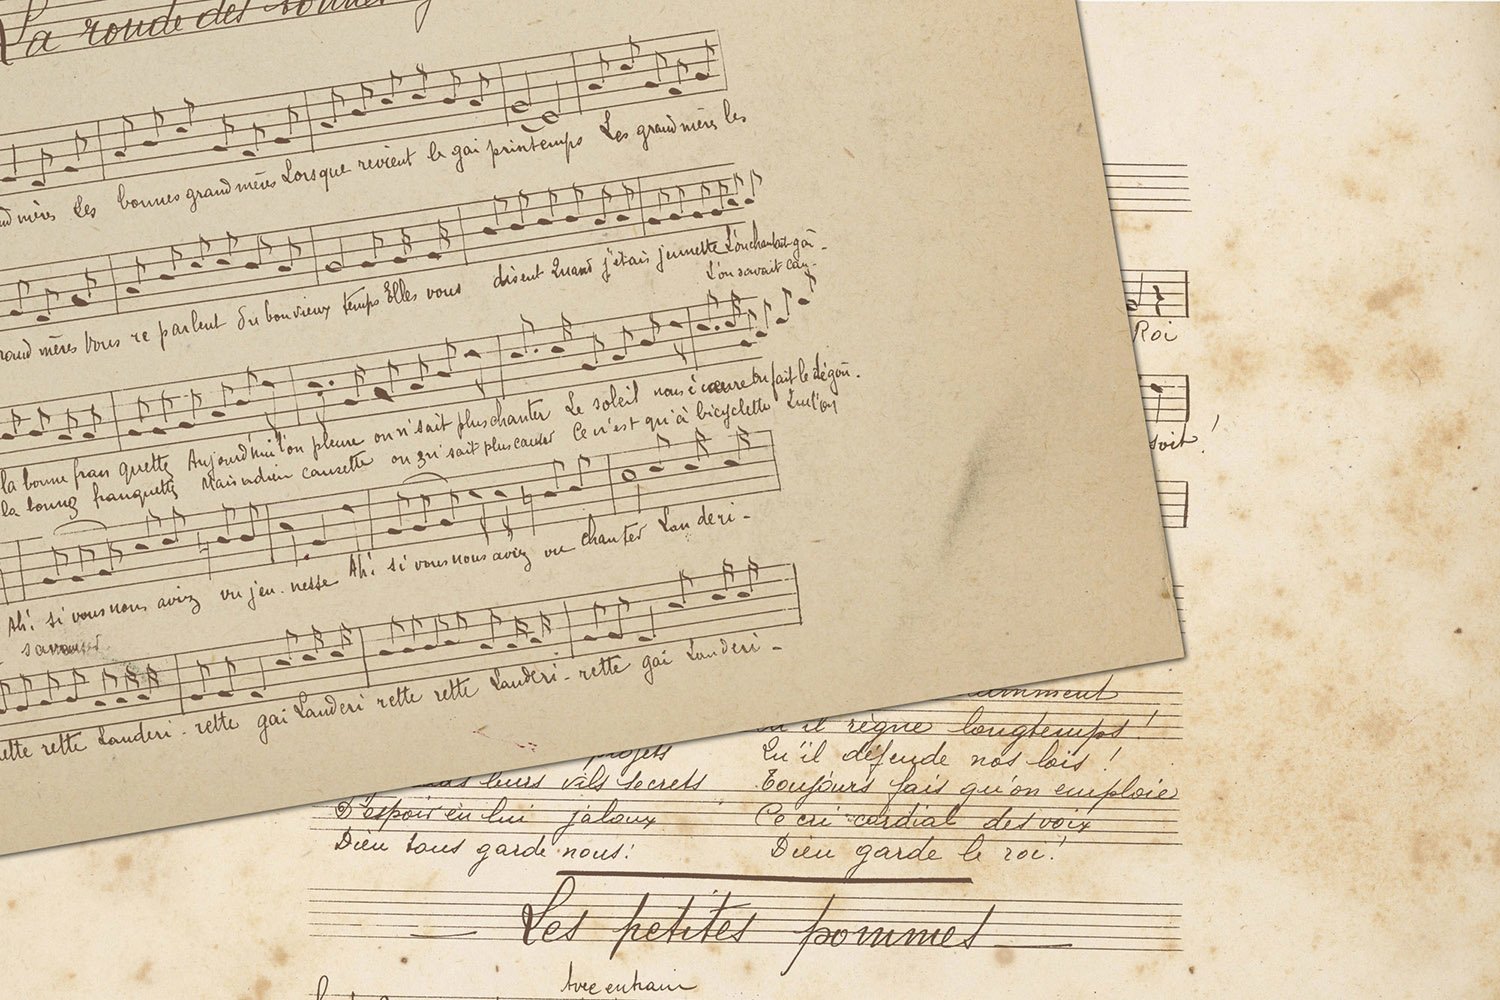 La ronde des
grand mères Les bonnes grand mères Lorsque revient le gai printemps Les grand mères les
grand mères Vous re parlent du bon vieux temps Elles vous disent Quand j'étais jeunette L'on chantait
L'on savait cau-
la bonne fran quette Aujourd'hui l'on pleure on n'sait plus chanter Le soleil nous fait le
la bonne franquette Mais adieu causette on n'sait plus causer Ce n'est qu'à bicyclette
Ah! si vous nous aviez vu jeu - nesse Ah! si vous nous aviez vu chanter Lan deri -
rette rette Landeri - rette gai Landeri rette rette Landeri - rette gai Landeri -
Roi
soit !
règne longtemps !
projets Qu'il défende nos lois !
leurs vils secrets Toujours fais qu'on emploie
D'espoir en lui jaloux Ce cri cordial des voix
Dieu tous garde nous! Dieu garde le roi!
Les petites pommes
Avec entrain